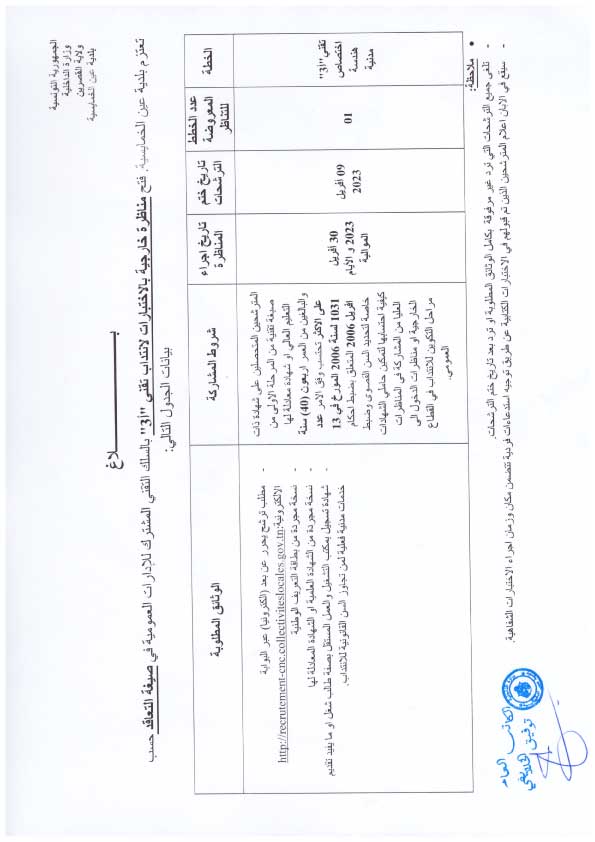 الجمهورية التونسية
وزارة الداخلية
ولاية القصرين
بلدية عين الخمايسية
بـــــــلاغ
تعتزم بلدية عين الخمايسية، فتح مناظرة خارجية بالاختبارات لانتداب تقني "أ3" بالسلك التقني المشترك للإدارات العمومية في صيغة التعاقد حسب
بيانات الجدول التالي:
الخطة
عدد الخطط
المعروضة
للتناظر
تاريخ ختم
الترشحات
تاريخ اجراء
المناظرة
شروط المشاركة
الوثائق المطلوبة
تقني "أ3"
اختصاص
هندسة
مدنية
01
09 افريل
2023
30 افريل
2023 و الأيام
الموالية
المترشحين المتحصلين على شهادة ذات
صبغة تقنية من المرحلة الأولى من
التعليم العالي او شهادة معادلة لها
والبالغين من العمر اربعون (40) سنة
على الأكثر تحتسب وفق الامر عدد
1031 لسنة 2006 المؤرخ في 13
افريل 2006 المتعلق بضبط احكام
خاصة لتحديد السن القصوى وضبط
كيفية احتسابها لتمكين حاملي الشهادات
العليا من المشاركة في المناظرات
الخارجية او مناظرات الدخول الى
مراحل التكوين للانتداب في القطاع
العمومي.
- مطلب ترشح يحرر عن بعد (الكترونيا) عبر البوابة
الالكترونية:http://recrutement-cnc.collectiviteslocales.gov.tn
- نسخة مجردة من بطاقة التعريف الوطنية
- نسخة مجردة من الشهادة العلمية او الشهادة المعادلة لها
- شهادة تسجيل بمكتب التشغيل والعمل المستقل بصفة طالب شغل او ما يفيد تقديم
خدمات مدنية فعلية لمن تجاوز السن القانونية للانتداب.
• ملاحظة:
- تلغى جميع الترشحات التي ترد غير مرفوقة بكامل الوثائق المطلوبة او ترد بعد تاريخ ختم الترشحات.
- سيقع في الابان اعلام المترشحين الذين تم قبولهم في الاختبارات الكتابية عن طريق توجيه استدعاءات فردية تتضمن مكان وزمان اجراء الاختبارات الشفاهية.
الكاتب العام
توفيق